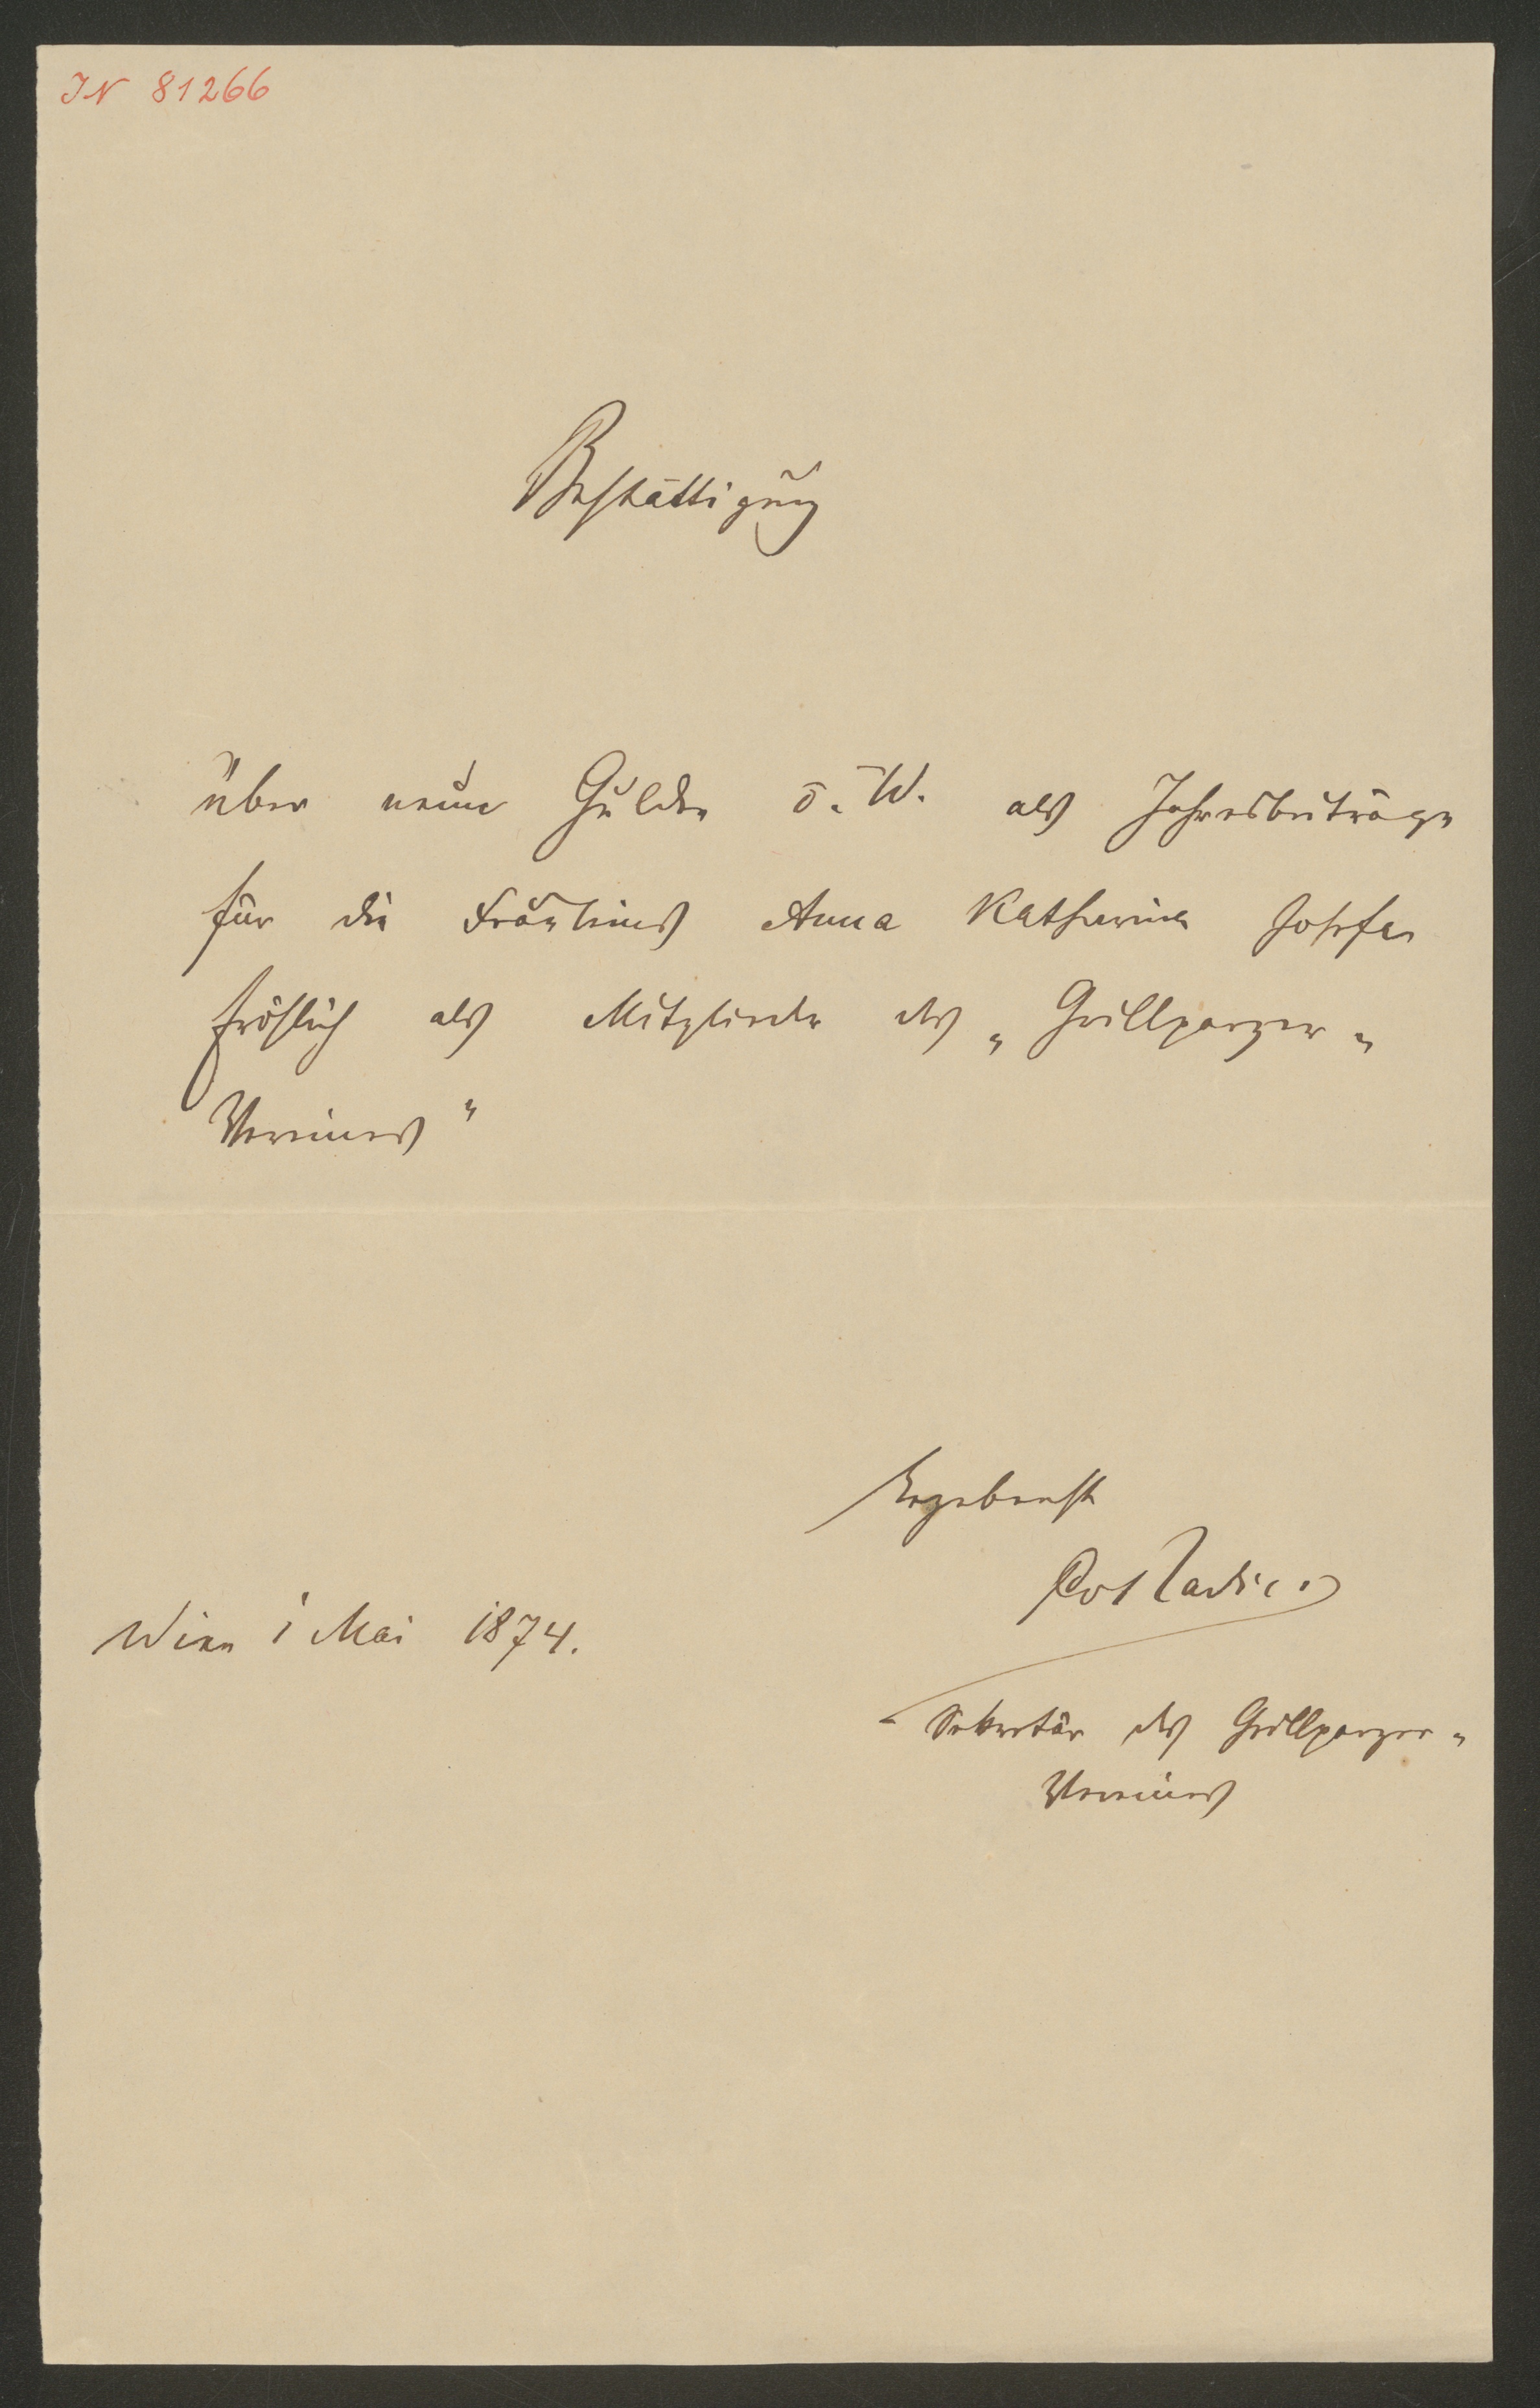 IN 81266
Bestättigung
über neun Gulden ö. W. als Jahresbeiträge
für die Fräuleins Anna Katharina Josefa
Fröhlich als Mitglieder des „Grillparzer-
Vereines"
Ergebenst
PvRadics
Wien 1 Mai 1874.
Sekretär des Grillparzer-
Vereines